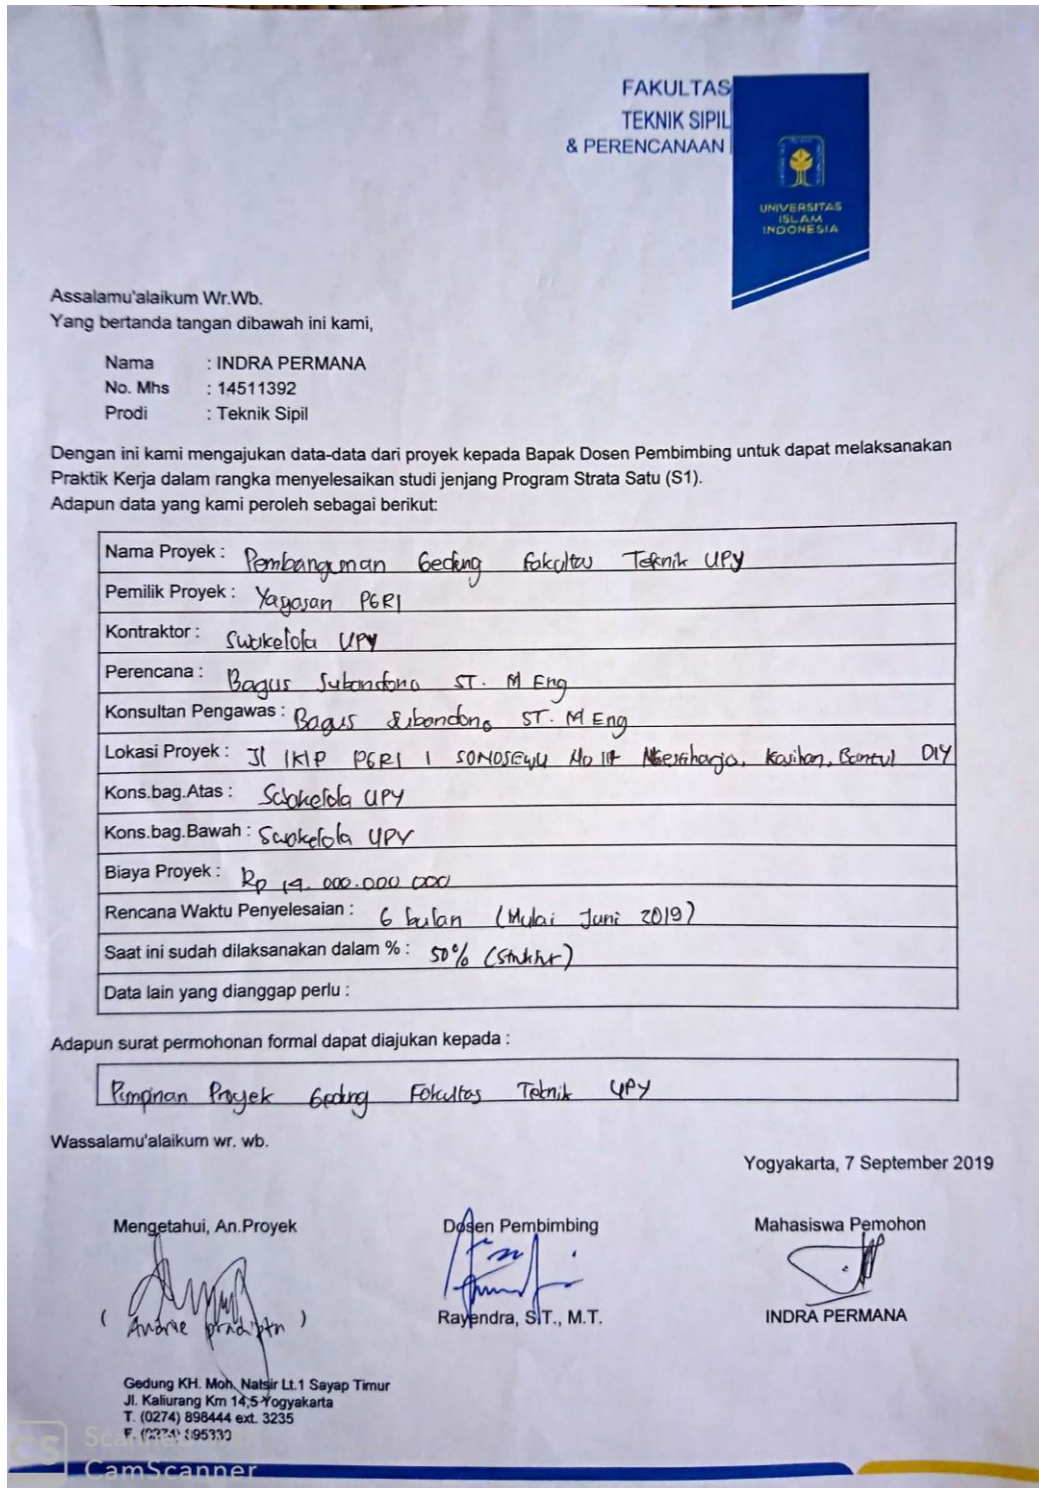 FAKULTAS
TEKNIK SIPIL
& PERENCANAAN
UNIVERSITAS
ISLAM
INDONESIA
Assalamu'alaikum Wr.Wb.
Yang bertanda tangan dibawah ini kami,
Nama : INDRA PERMANA
No. Mhs : 14511392
Prodi : Teknik Sipil
Dengan ini kami mengajukan data-data dari proyek kepada Bapak Dosen Pembimbing untuk dapat melaksanakan
Praktik Kerja dalam rangka menyelesaikan studi jenjang Program Strata Satu (S1).
Adapun data yang kami peroleh sebagai berikut:
Nama Proyek : Pembangunan Gedung Fakultas Teknik UPY
Pemilik Proyek : Yayasan PGRI
Kontraktor : Swakelola UPY
Perencana : Bagus Subandono ST. M Eng
Konsultan Pengawas : Bagus Subandono ST. M Eng
Lokasi Proyek : Jl IKIP PGRI 1 SONOSEWU No Kasihan, Bantul DIY
Kons.bag.Atas : Swakelola UPY
Kons.bag.Bawah : Swakelola UPY
Biaya Proyek : Rp 14. 000.000 000
Rencana Waktu Penyelesaian : 6 bulan (Mulai Juni 2019)
Saat ini sudah dilaksanakan dalam % : 50% (Struktur)
Data lain yang dianggap perlu :
Adapun surat permohonan formal dapat diajukan kepada :
Pimpinan Proyek Gedung Fakultas Teknik UPY
Wassalamu'alaikum wr. wb.
Yogyakarta, 7 September 2019
Mengetahui, An.Proyek Dosen Pembimbing Mahasiswa Pemohon
Rayendra, S.T., M.T. INDRA PERMANA
Gedung KH. Moh. Natsir Lt.1 Sayap Timur
Jl. Kaliurang Km 14,5 Yogyakarta
T. (0274) 898444 ext. 3235
F. (0274) 895330
CS
CamScanner